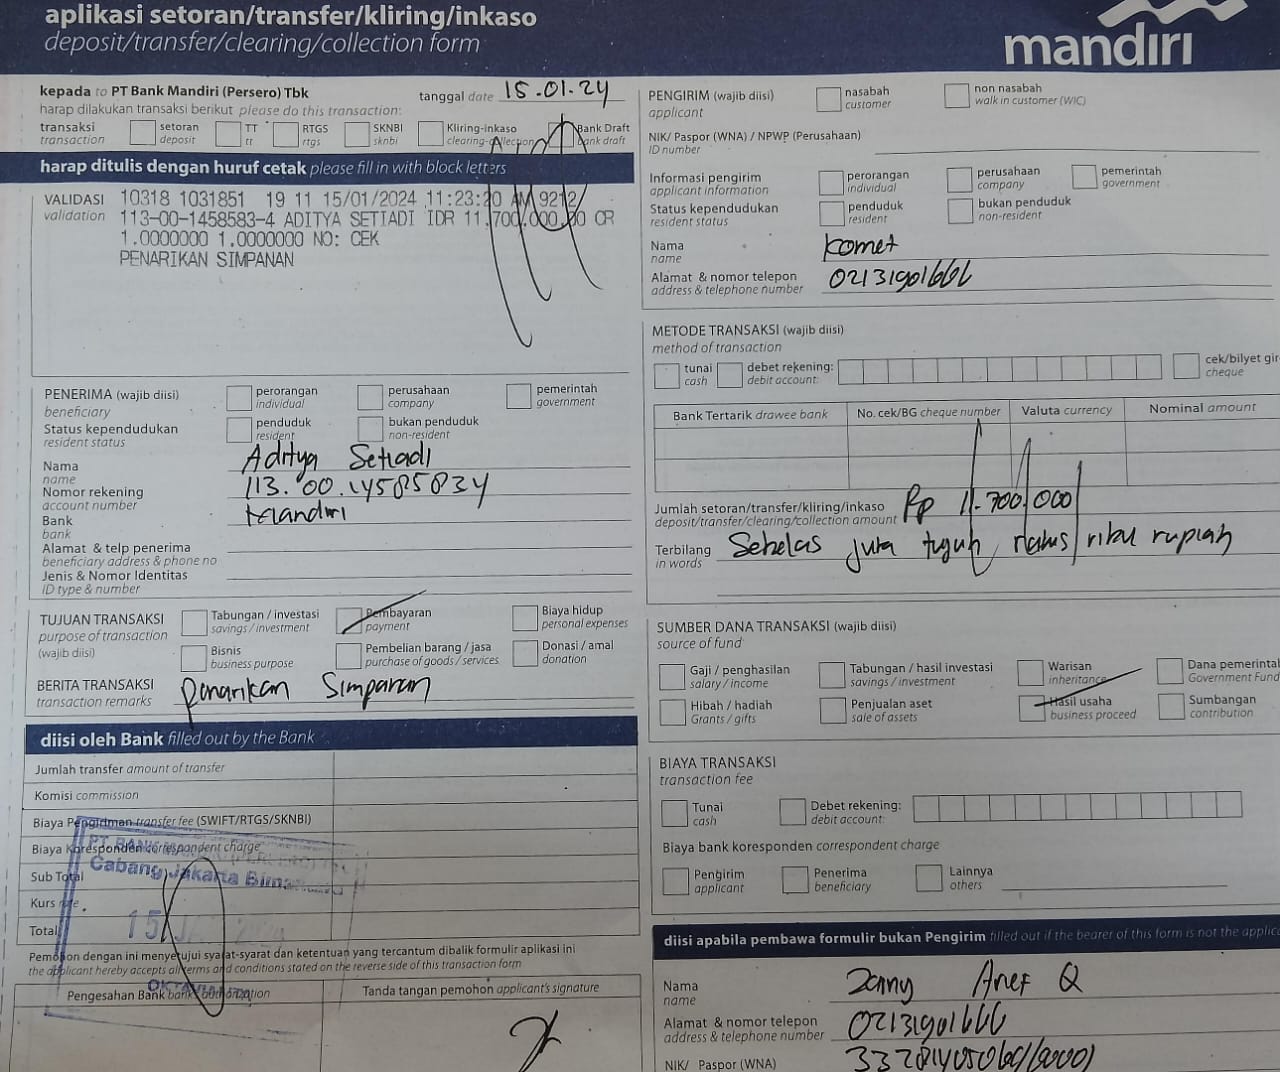 aplikasi setoran/transfer/kliring/inkaso
deposit/transfer/clearing/collection form
mandırı
kepada to PT Bank Mandiri (Persero) Tbk
tanggal date 15.01.24
harap dilakukan transaksi berikut please do this transaction:
transaksi
transaction
setoran
deposit
TT
tt
RTGS
rtgs
SKNBI
sknbi
Kliring-inkaso
clearing-collection
Bank Draft
bank draft
harap ditulis dengan huruf cetak please fill in with block letters
VALIDASI
validation
10318 1031851 19 11 15/01/2024 11:23:20 AM 9212
113-00-1458583-4 ADITYA SETIADI IDR 11.700.000,00 CR
1.0000000 1.0000000 NO: CEK
PENARIKAN SIMPANAN
PENERIMA (wajib diisi)
beneficiary
perorangan
individual
perusahaan
company
pemerintah
government
Status kependudukan
resident status
penduduk
resident
bukan penduduk
non-resident
Nama
name
Aditya Setiadi
Nomor rekening
account number
113.00.14585834
Bank
bank
Alamat & telp penerima
beneficiary address & phone no
Jenis & Nomor Identitas
ID type & number
TUJUAN TRANSAKSI
purpose of transaction
(wajib diisi)
Tabungan / investasi
savings / investment
Pembayaran
payment
Biaya hidup
personal expenses
Bisnis
business purpose
Pembelian barang / jasa
purchase of goods / services
Donasi / amal
donation
BERITA TRANSAKSI
transaction remarks
Penarikan Simpanan
diisi oleh Bank filled out by the Bank
Jumlah transfer amount of transfer
Komisi commission
Biaya Pengiriman transfer fee (SWIFT/RTGS/SKNBI)
Biaya Koresponden correspondent charge
Sub Total
Kurs rate
Total
PT. BANK
Cabang Jakarta
15
Pemohon dengan ini menyetujui syarat-syarat dan ketentuan yang tercantum dibalik formulir aplikasi ini
the applicant hereby accepts all terms and conditions stated on the reverse side of this transaction form
Pengesahan Bank bank authorization
Tanda tangan pemohon applicant's signature
PENGIRIM (wajib diisi)
applicant
nasabah
customer
non nasabah
walk in customer (WIC)
NIK/ Paspor (WNA) / NPWP (Perusahaan)
ID number
Informasi pengirim
applicant information
perorangan
individual
perusahaan
company
pemerintah
government
Status kependudukan
resident status
penduduk
resident
bukan penduduk
non-resident
Nama
name
Komet
Alamat & nomor telepon
address & telephone number
02131901666
METODE TRANSAKSI (wajib diisi)
method of transaction
tunai
cash
debet rekening:
debit account:
cek/bilyet gir
cheque
Bank Tertarik drawee bank
No. cek/BG cheque number
Valuta currency
Nominal amount
Jumlah setoran/transfer/kliring/inkaso
deposit/transfer/clearing/collection amount
Rp 11.700.000
Terbilang
in words
Sebelas juta tujuh ratus ribu rupiah
SUMBER DANA TRANSAKSI (wajib diisi)
source of fund
Gaji / penghasilan
salary / income
Tabungan / hasil investasi
savings / investment
Warisan
inheritance
Dana pemerintal
Government Fund
Hibah / hadiah
Grants / gifts
Penjualan aset
sale of assets
Hasil usaha
business proceed
Sumbangan
contribution
BIAYA TRANSAKSI
transaction fee
Tunai
cash
Debet rekening:
debit account:
Biaya bank koresponden correspondent charge
Pengirim
applicant
Penerima
beneficiary
Lainnya
others
diisi apabila pembawa formulir bukan Pengirim filled out if the bearer of this form is not the applic
Nama
name
Arief Q
Alamat & nomor telepon
address & telephone number
02131901666
NIK/ Paspor (WNA)